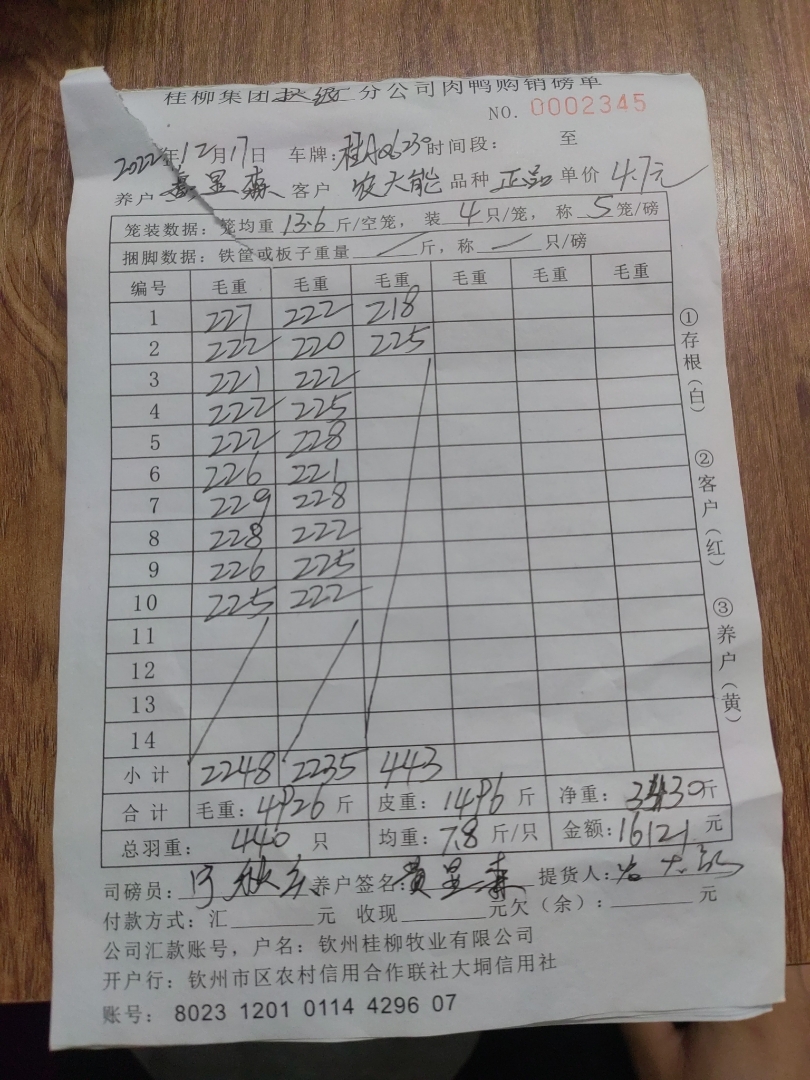 桂柳集团 分公司肉鸭购销磅单
NO. 0002345
2022年12月17日 车牌：桂A06230 时间段： 至
养户 显森 客户 农大能 品种 正品 单价 4.7元
笼装数据：笼均重 13.6 斤/空笼， 装 4 只/笼， 称 5 笼/磅
捆脚数据：铁筐或板子重量 斤，称 只/磅
编号 毛重 毛重 毛重 毛重 毛重 毛重
1 227 222 218
2 222 220 225
3 221 222
4 222 225
5 222 228
6 226 221
7 229 228
8 228 222
9 226 225
10 225 222
11
12
13
14
小计 2248 2235 443
合计 毛重：4926 斤 皮重：1496 斤 净重：3430 斤
总羽重： 440 只 均重：7.8 斤/只 金额：16121 元
司磅员： 养户签名：黄显森 提货人：
付款方式：汇 元 收现 元欠（余）： 元
公司汇款账号，户名：钦州桂柳牧业有限公司
开户行：钦州市区农村信用合作联社大垌信用社
账号： 8023 1201 0114 4296 07
①存根（白）
②客户（红）
③养户（黄）